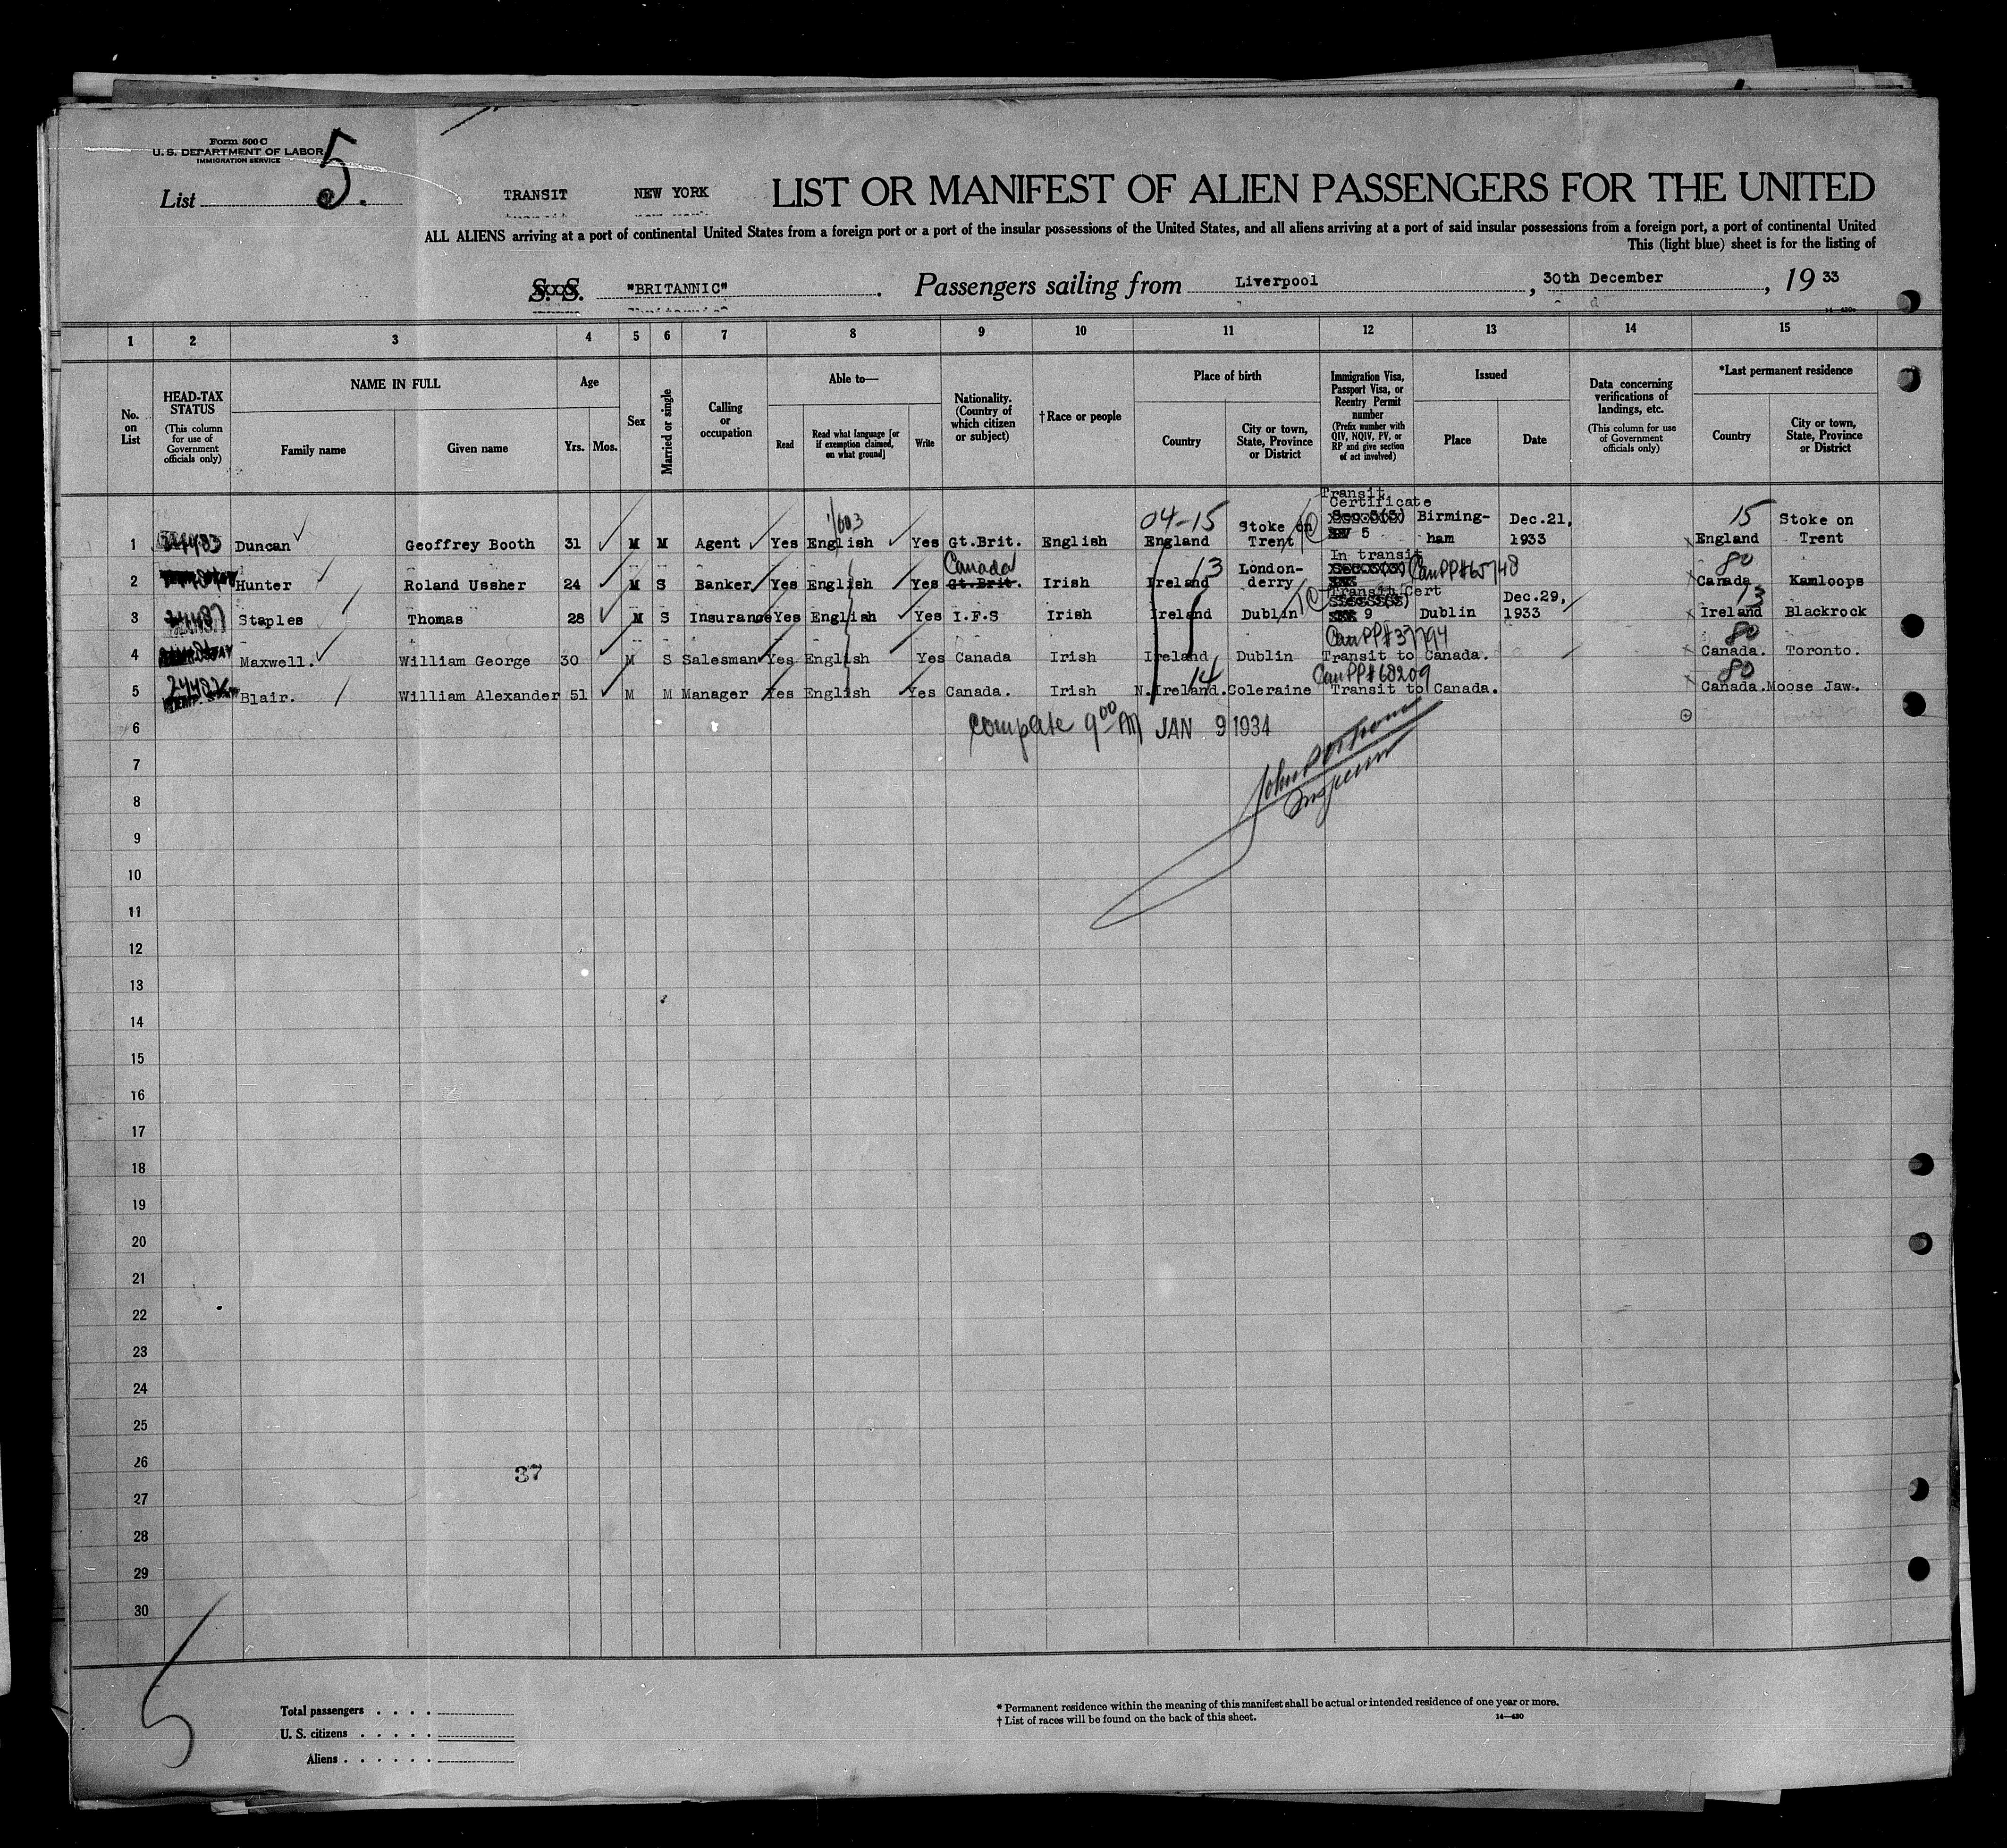 Form 500 C
U. S. DEPARTMENT OF LABOR
IMMIGRATION SERVICE
List 5.
TRANSIT NEW YORK
LIST OR MANIFEST OF ALIEN PASSENGERS FOR THE UNITED
ALL ALIENS arriving at a port of continental United States from a foreign port or a port of the insular possessions of the United States, and all aliens arriving at a port of said insular possessions from a foreign port, a port of continental United
This (light blue) sheet is for the listing of
S. S. "BRITANNIC" . Passengers sailing from Liverpool , 30th December , 19 33
14-430a
1 2 3 4 5 6 7 8 9 10 11 12 13 14 15
No. on List
HEAD-TAX STATUS
(This column for use of Government officials only)
NAME IN FULL
Family name
Given name
Age
Yrs. Mos.
Sex
Married or single
Calling or occupation
Able to—
Read
Read what language [or if exemption claimed, on what ground]
Write
Nationality. (Country of which citizen or subject)
†Race or people
Place of birth
Country
City or town, State, Province or District
Immigration Visa, Passport Visa, or Reentry Permit number
(Prefix number with QIV, NQIV, PV, or RP and give section of act involved)
Issued
Place
Date
Data concerning verifications of landings, etc.
(This column for use of Government officials only)
*Last permanent residence
Country
City or town, State, Province or District
1 Duncan Geoffrey Booth 31 M M Agent Yes English Yes Gt.Brit. English 04-15 England Stoke on Trent Transit Certificate Sec.3(3) 5 Birmingham Dec.21, 1933 15 England Stoke on Trent
2 Hunter Roland Ussher 24 M S Banker Yes English Yes Canada Gt.Brit. Irish Ireland 13 London-derry In transit Can PP#65748 80 Canada Kamloops
3 Staples Thomas 28 M S Insurance Yes English Yes I.F.S Irish Ireland Dublin Transit Cert 9 Dublin Dec.29, 1933 13 Ireland Blackrock
4 Maxwell. William George 30 M S Salesman Yes English Yes Canada Irish Ireland Dublin Can PP#37794 Transit to Canada. 80 Canada. Toronto.
5 Blair. William Alexander 51 M M Manager Yes English Yes Canada. Irish 14 N.Ireland. Coleraine Can PP#60209 Transit to Canada. 80 Canada. Moose Jaw.
6 complete 9 00 AM JAN 9 1934
7
8
9
10
11
12
13
14
15
16
17
18
19
20
21
22
23
24
25
26
37
27
28
29
30
Total passengers . . . .
U. S. citizens . . . . .
Aliens . . . . . .
* Permanent residence within the meaning of this manifest shall be actual or intended residence of one year or more.
† List of races will be found on the back of this sheet.
14—430